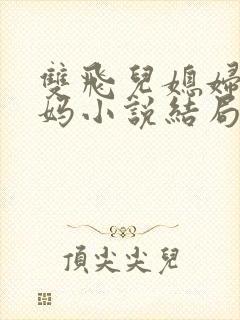 雙飛兒媳婦
妈小說結局
頂尖尖兒